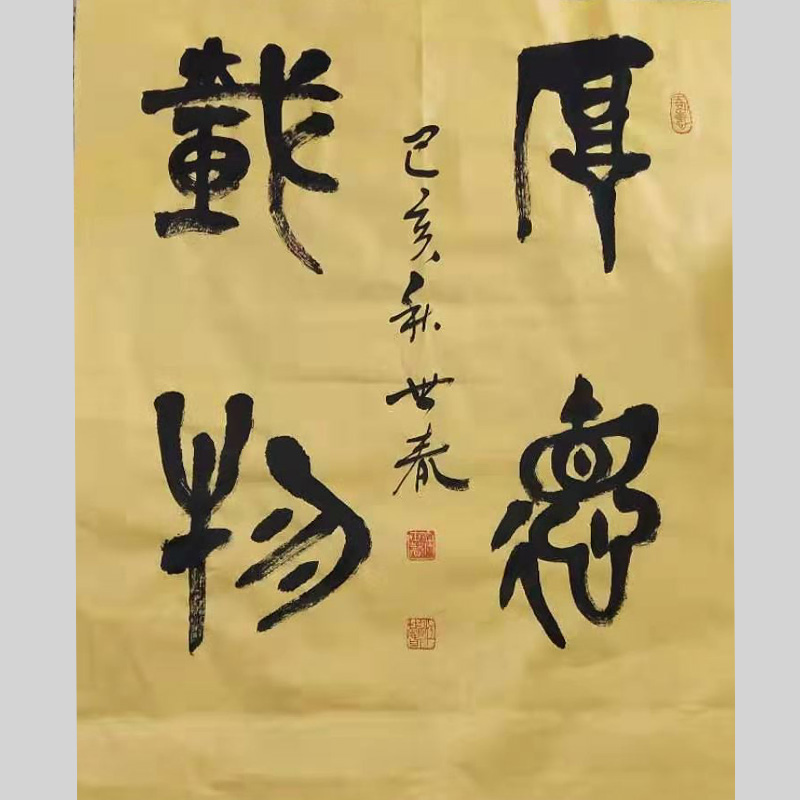 厚德
載物
己亥秋 世春